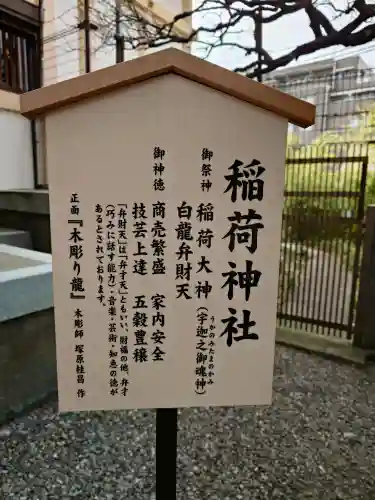 稲荷神社
御祭神 稲荷大神（宇迦之御魂神）
うかのみたまのかみ
白龍弁財天
御神徳 商売繁盛 家内安全
技芸上達 五穀豊穣
「弁財天」は「弁才天」ともいい、財福の他、弁才
（巧みに話す能力）・音楽・芸術・知恵の徳が
あるとされております。
正面『木彫り龍』 木彫師 塚原桂昌 作